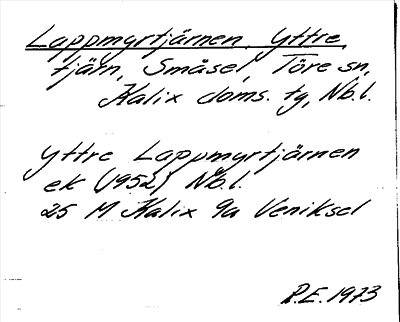 Lappmyrtjärnen, Yttre,
tjärn, Småsel, Töre sn,
Kalix doms. tg, Nb.l.
Yttre Lappmyrtjärnen
ek (1952) Nb.l.
25 M Kalix 9a Veniksel
P.E. 1973